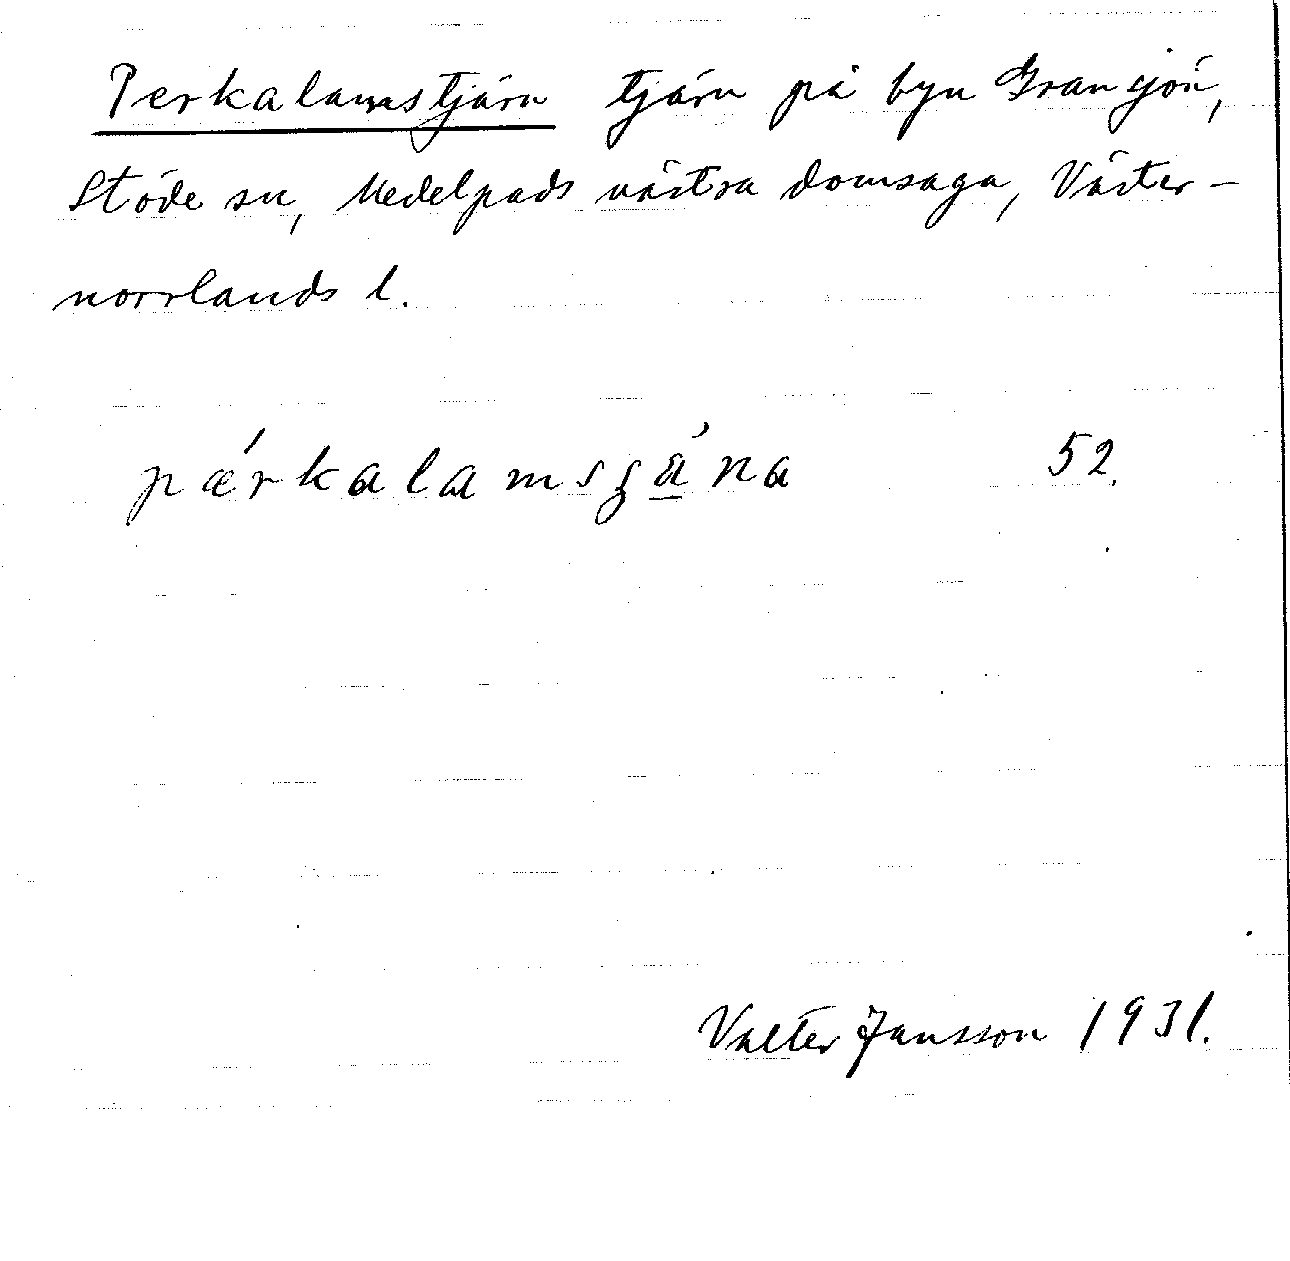 Perkalamstjärn tjärn på byn Gransjön,
Stöde sn, Medelpads västra domsaga, Väster-
norrlands l.
pǽrkalamsʒä́na 52.
Valter Jansson 1931.